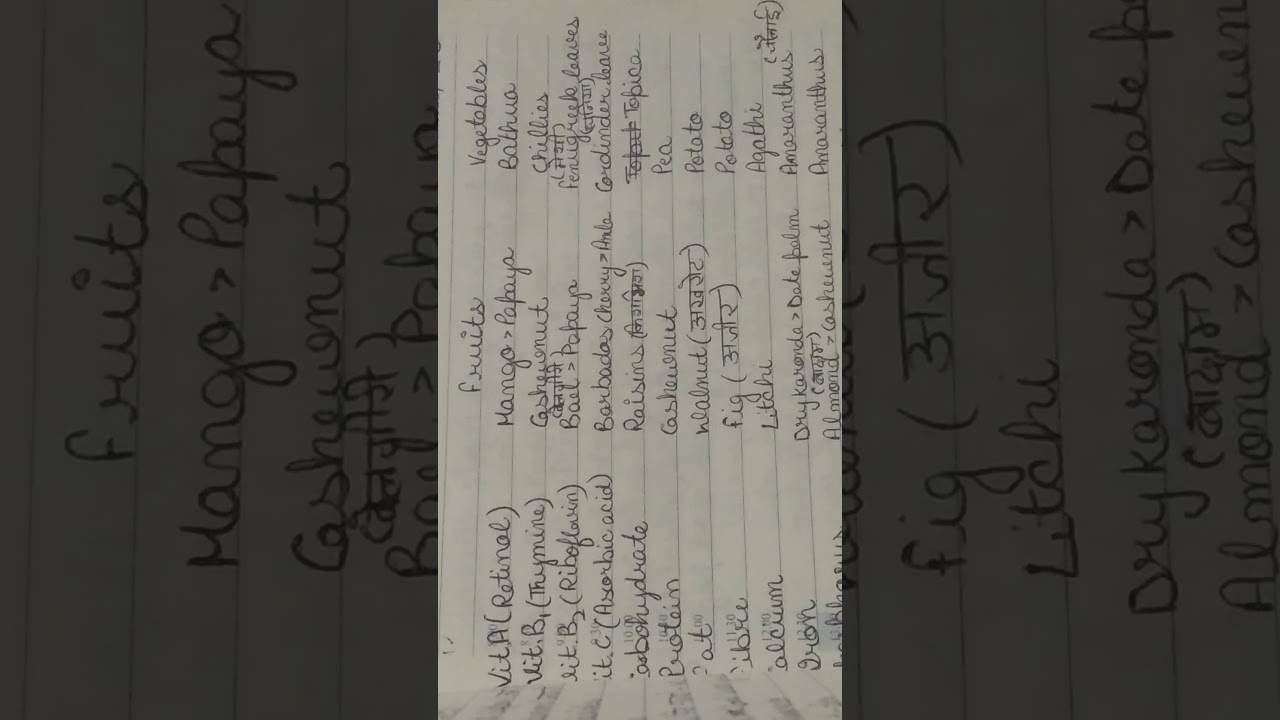 Fruits Vegetables
Vit.A (Retinol) Mango > Papaya Bathua
Vit.B1 (Thymine) Cashewnut Chillies
(बेलगिरी) (मेथी)
Vit.B2 (Riboflavin) Bael > Papaya Fenugreek leaves
it.C (Ascorbic acid) Barbados cherry > Amla Cordinder leave
arbohydrate Raisins Topica
Protein Cashewnut Pea
at Walnut (अखरोट) Potato
ibre Fig (अंजीर) Potato
alcium Litchi Agathi
Iron Dry karonda > Date palm Amaranthus (चौलाई)
(बादाम)
Almond > Cashewnut Amaranthus
Fruits
Mango > Papaya
Cashewnut
(बेलगिरी)
Bael > Papaya
Fig (अंजीर)
Litchi
Dry karonda > Date
(बादाम)
Almond > Cashewnut